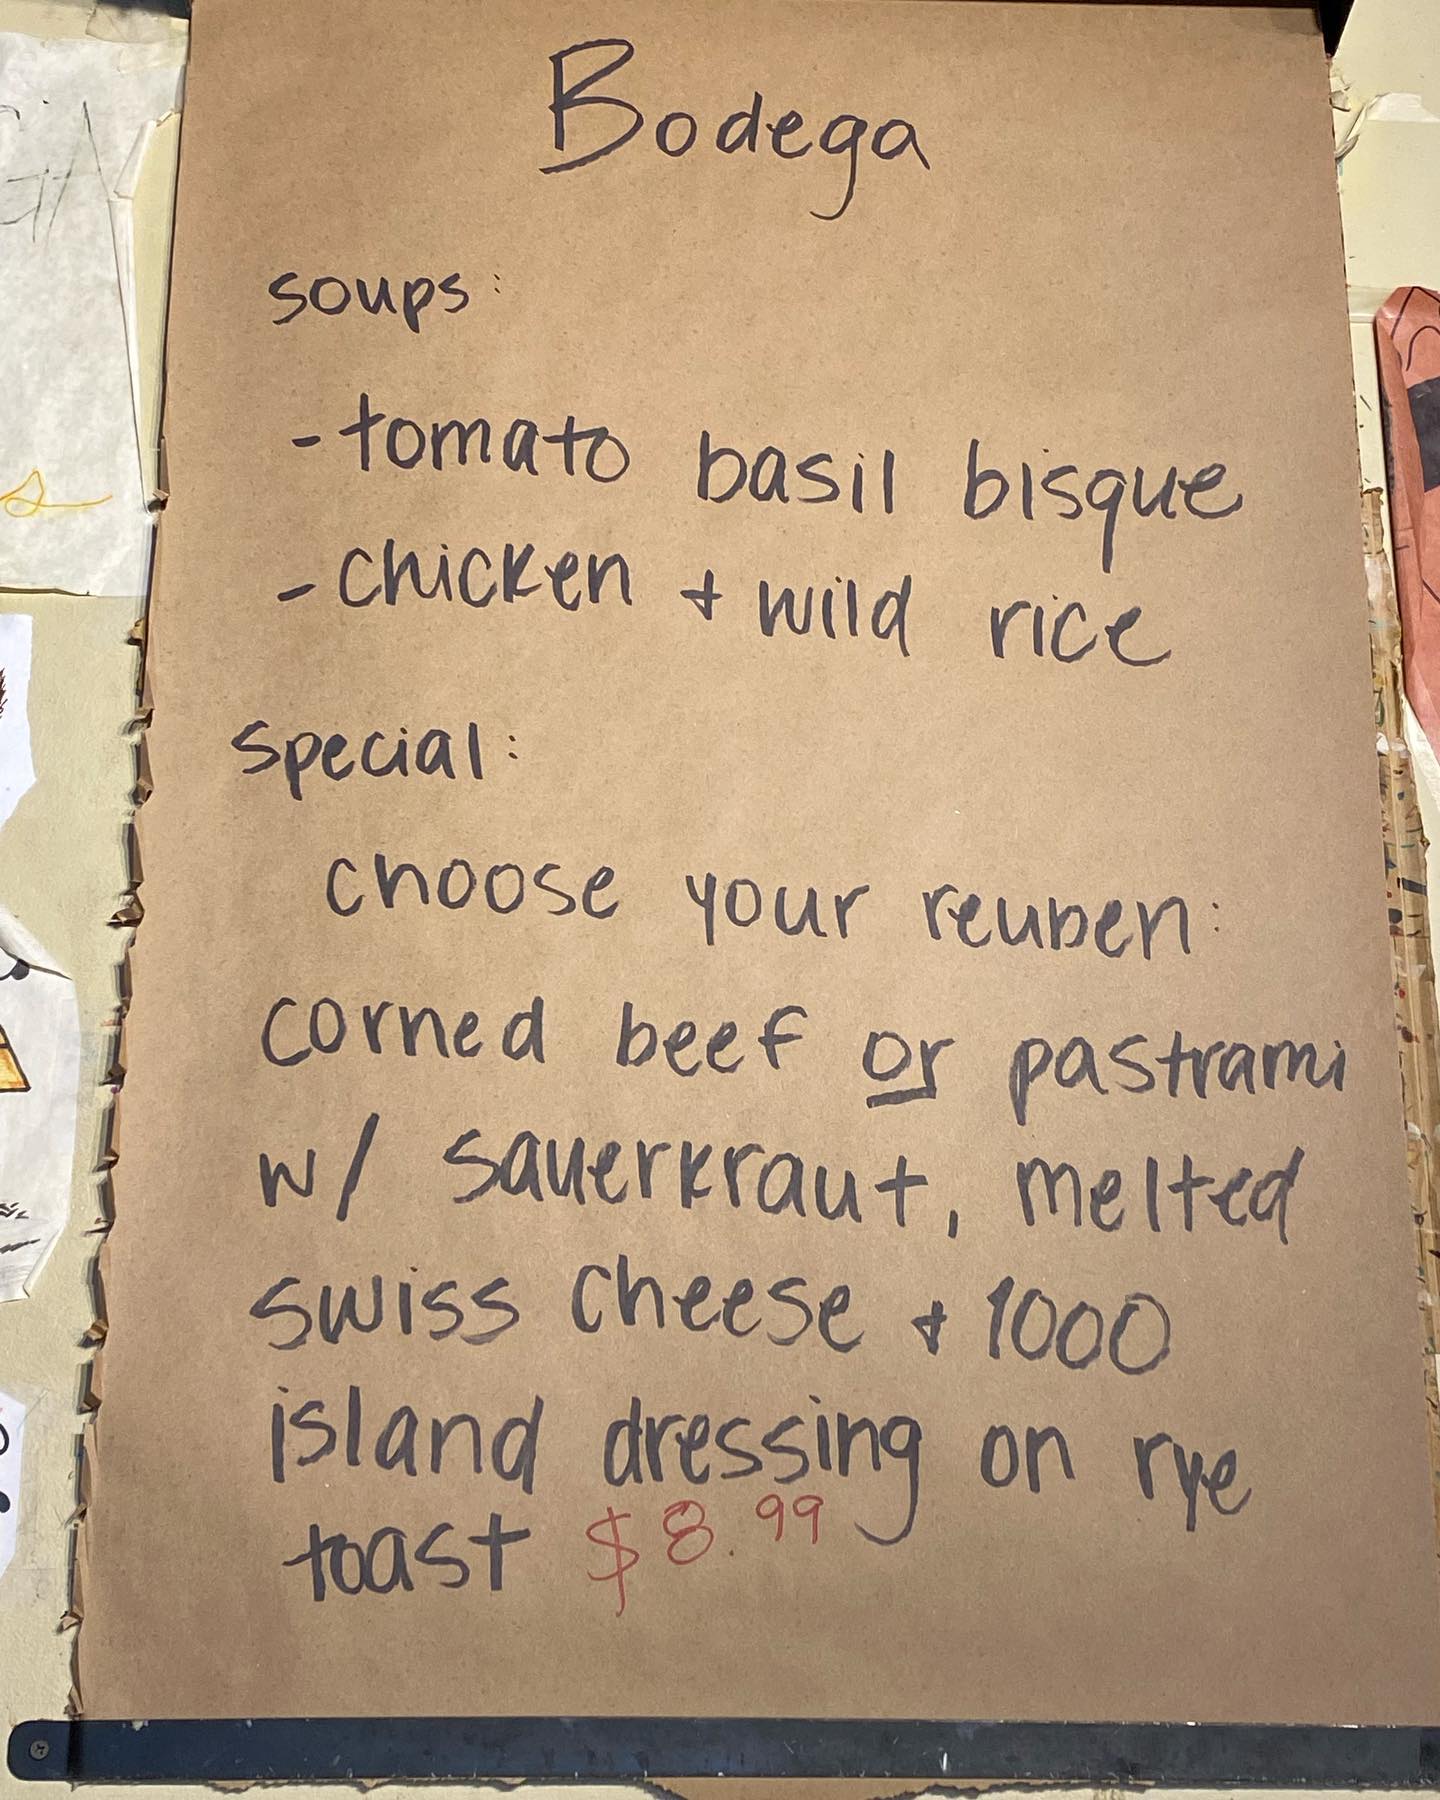 Bodega
soups:
-tomato basil bisque
-chicken + wild rice
special:
choose your reuben:
corned beef or pastrami
w/ sauerkraut, melted
swiss cheese + 1000
island dressing on rye
toast $8.99